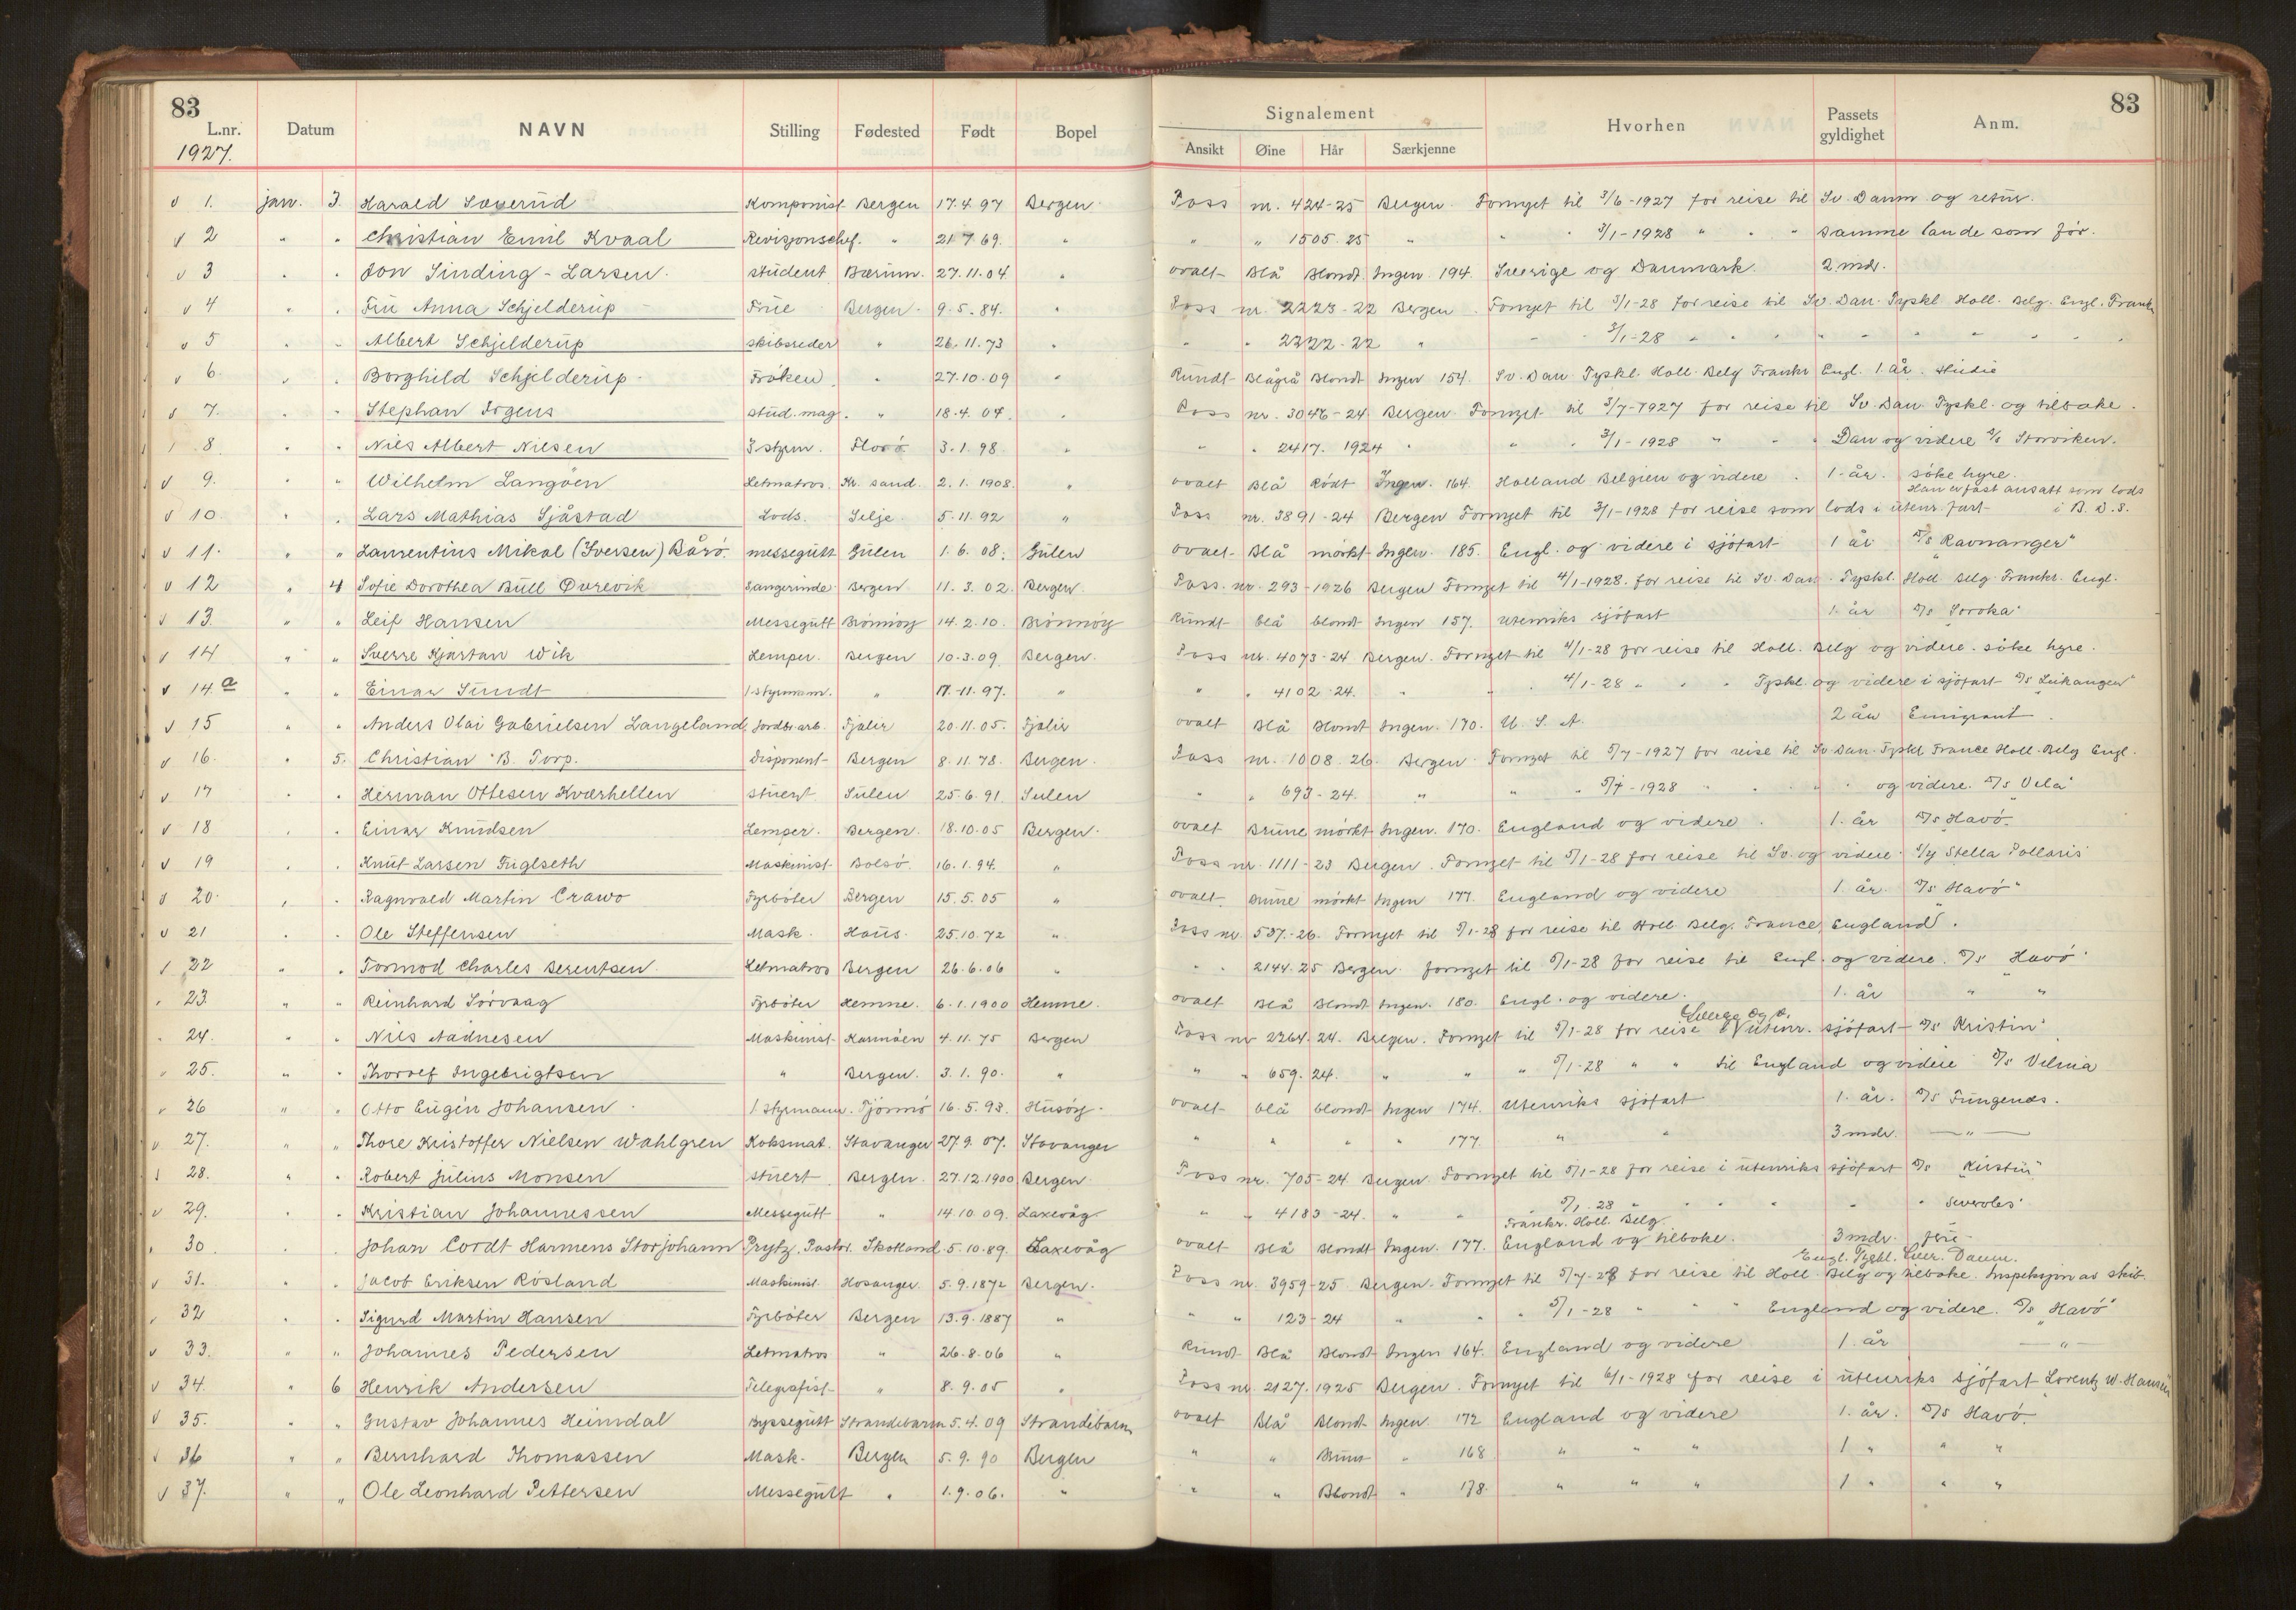 83
L.nr. Datum NAVN Stilling Fødested Født Bopel Signalement Ansikt Øine Hår Særkjenne Hvorhen Passets gyldighet Anm. 83
1927.
1. jan. 3. Harald Sæverud Komponist Bergen 17.4.97 Bergen Pass nr. 424-25 Bergen. Fornyet til 3/6-1927 for reise til Sv. Danm og retur.
2 " " Christian Emil Kvaal Revisjonschef. " 21.7.69. " " " 1505.25 " " " 3/1-1928 " " " samme lande som før.
3 " " Jon Sinding-Larsen. student Bærum. 27.11.04 " ovalt Blå Blondt Ingen 194. Sverige og Danmark. 2 mdr.
4 " " Fru Anna Schjelderup Frue Bergen. 9.5.84. " Pass nr. 2223-22 Bergen. Fornyet til 3/1-28 for reise til Sv. Dan. Tyskl. Holl. Belg. Engl. Frankr
5 " " Albert Schjelderup skibsreder " 26.11.73 " " " 2222-22 " " " 3/1-28 " " " " " " " " "
6. " " Borghild Schjelderup Frøken. " 27.10.09 " Rundt Blågrå Blondt Ingen 154. Sv. Dan. Tyskl. Holl. Belg Frankr Engl. 1 år. studie
7. " " Stephan Irgens stud.mag. " 18.4.04. " Pass nr. 3046-24 Bergen Fornyet til 3/7-1927 for reise til Sv. Dan. Tyskl. og tilbake.
8. " " Niels Albert Nilsen 3 styrm. Florø 3.1.98 " " " 2417. 1924 " " " 3/1-1928 " " " Dan og videre s/s Storviken.
9. " " Wilhelm Langøen Letmatros Kr. sand. 2.1.1908. " ovalt Blå Rødt Ingen. 164. Holland Belgien og videre. 1 år. søke hyre.
Han er fast ansatt som lods
10. " " Lars Mathias Sjåstad Lods. Selje. 5.11.92 " Pass nr. 3891-24 Bergen Fornyet til 3/1-1928 for reise som lods i utenr. fart i B.D.S.
11. " " Laurentius Mikal (Iversen) Bårø. messegutt Gulen 1.6.08. Gulen ovalt Blå mørkt Ingen. 185. Engl. og videre i sjøfart 1 år s/s "Ravnanger"
12 " 4 Sofie Dorothea Bull Øvrevik Sangerinde Bergen 11.3.02. Bergen. Pass. nr. 293-1926 Bergen Fornyet til 4/1-1928. for reise til Sv. Dan. Tyskl. Holl Belg. Frankr. Engl.
13. " " Leif Hansen Messegutt Brønnøy 14.2.10. Brønnøy Rundt blå blondt Ingen 157. utenriks sjøfart 1 år s/s "Soroka"
14 " " Sverre Kjartan Wik Lemper. Bergen 10.3.09. Bergen. Pass nr. 4073-24 Bergen. Fornyet til 4/1-28 for reise til Holl. Belg og videre. søke hyre.
14.a " " Einar Sundt 1 styrmann. " 17.11.97. " " " 4102-24. " " " 4/1-28 " " " Tyskl og videre i sjøfart s/s "Leikanger"
15 " " Anders Olai Gabrielsen Langeland Jordbr.arb. Fjaler 20.11.05. Fjaler ovalt Blå Blondt Ingen. 170. U.S.A. 2 år Emigrant.
16. " 5. Christian B. Torp. Disponent Bergen 8.11.78. Bergen. Pass nr. 1008.26. Bergen Fornyet til 5/7-1927 for reise til Sv. Dan. Tyskl France Holl. Belg Engl.
17 " " Herman Ottesen Kværhellen stuert Sulen 25.6.91 Sulen " " 693-24. " " " 5/4-1928 " " " og videre. s/s "Vela"
18 " " Einar Knudsen Lemper. Bergen. 18.10.05 Bergen. ovalt Brune mørkt Ingen. 170. England og videre. 1. år s/s "Havø"
19 " " Knut Larsen Fuglseth Maskinist Bolsø. 16.1.94. " Pass nr. 1111-23 Bergen. Fornyet til 5/1-28 for reise til Sv. og videre. s/y Stella Pollaris
20. " " Ragnvald Martin Crawo Fyrbøter Bergen 15.5.05 " ovalt. Brune mørkt Ingen 177. England og videre 1. år. s/s "Havø"
21 " " Ole Steffensen Mask. Haus. 25.10.72 " Pass nr. 537.-26. Fornyet til 5/1-28 for reise til Holl. Belg. France England.
22 " " Tormod Charles Berentsen. Letmatros Bergen 26.6.06 " " " 2144.25 Bergen. fornyet til 5/1-28 for reise til Engl. og videre. s/s "Havø"
23. " " Reinhard Sørvaag Fyrbøter Hemne. 6.1.1900 Hemne. ovalt Blå Blondt Ingen. 180. Engl. og videre. 1. år " "
Sverge og v.
24. " " Nils Aadnesen Maskinist Karmøen 4.11.75 Bergen Pass nr 2264.24. Bergen. Fornyet til 5/1-28 for reise i utenr. sjøfart s/s "Kristin"
25. " " Thorolf Ingebrigtsen " Bergen. 3.1.90. " " " 659.24. " " " 5/1-28 " " til England og videre s/s Velma
26 " " Otto Eugén Johansen. 1. styrmann. Tjømø 16.5.93. Husøy. ovalt blå blondt Ingen 174. Utenriks sjøfart 1. år. s/s Fungenæs.
27. " " Thore Kristoffer Nielsen Wahlgren Koksmat. Stavanger 27.9.07. Stavanger " " " " 177. " " 3 mdr. — " —
28. " " Robert Julius Monsen stuert Bergen. 27.12.1900 Bergen Pass nr. 705-24 Bergen. Fornyet til 5/1-28 for reise i utenriks sjøfart s/s "Kirstin"
29. " " Kristian Johannessen Messegutt " 14.10.09. Laxevåg " " 4183-24. " " 5/1-28 " " " " " "
Frankr. Holl. Belg
30 " " Johan Cordt Harmens Storjohann Prytz. Pastor. Skotland. 5.10.89. Laxevåg ovalt Blå Blondt Ingen. 177. England og tilbake. 3 mdr.
Engl. Tyskl. Sver. Danm.
31. " " Jacob Eriksen Røsland Maskinist Hosanger. 5.9.1872 Bergen. Pass nr. 3959-25 Bergen. Fornyet til 5/7-28 for reise til Holl. Belg og tilbake. Inspeksjon av skib.
32 " " Sigurd Martin Hansen Fyrbøter Bergen 13.9.1887 " " " 123-24 " " " 5/1-28 " " " England og videre. s/s "Havø"
33. " " Johannes Pedersen Letmatros " 26.8.06 " Rundt Blå Blondt Ingen 164. England og videre 1. år — " —
34. " 6 Henrik Andersen Telegrafist " 8.9.05 " Pass nr 2127.1925 Bergen. Fornyet til 6/1-1928 for reise i utenriks sjøfart Lorentz W. Hansen
35. " " Gustav Johannes Heimdal Byssegutt Strandebarm 5.4.09 Strandebarm ovalt Blå Blondt Ingen. 172 England og videre 1. år. s/s Havø.
36 " " Bernhard Thomassen Mask. Bergen 5.9.90 Bergen " " Brunt " 168 " " " 1 " " "
37. " " Ole Leonhard Pettersen Messegutt " 1.9.06. " " " Blondt " 178. " " " 1 " " "